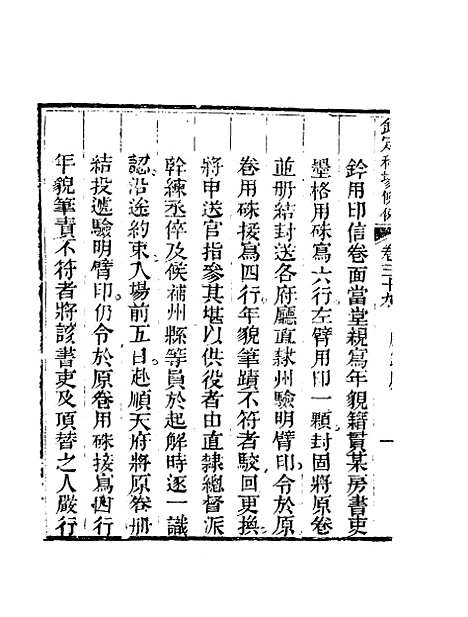 欽定科場條例 卷三十九 一
鈐用印信卷面當堂親寫年貌籍貫某房書吏
墨格用硃寫六行左臂用印一顆封固將原卷
並册結封送各府廳直隸州驗明臂印令於原
卷用硃接寫四行年貌筆蹟不符者駁回更換
將申送官指參其堪以供役者由直隸總督派
幹練丞倅及候補州縣等員於起解時逐一識
認沿途約束入場前五日赴順天府將原卷册
結投遞驗明臂印仍令於原卷用硃接寫四行
年貌筆責不符者將該書吏及頂替之人嚴行